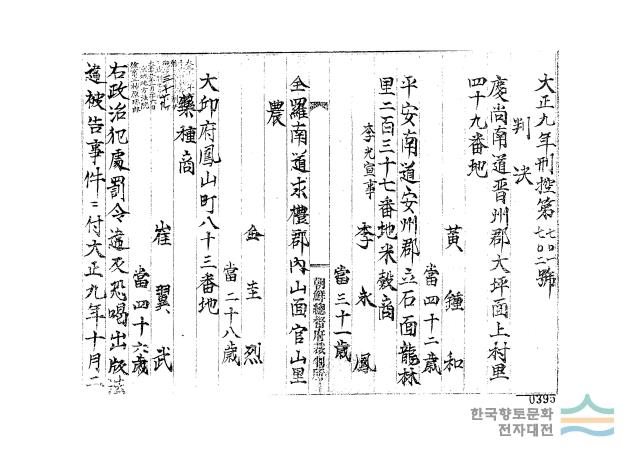 大正九年刑控第七〇一七〇二號
判決
慶尚南道晋州郡大坪面上村里
四十九番地
黃鍾和
當四十二歲
平安南道安州郡立石面龍林
里二百三十七番地米穀商
李光宣事 李永鳳
當三十一歲
朝鮮總督府裁判所
全羅南道求禮郡內山面官山里
農
金圭烈
當二十八歲
大邱府鳳山町八十三番地
藥種商
崔翼武
當四十六歲
右政治犯處罰令違反恐喝出版法
違被告事件ニ付大正九年十月二
0395
한국향토문화
전자대전